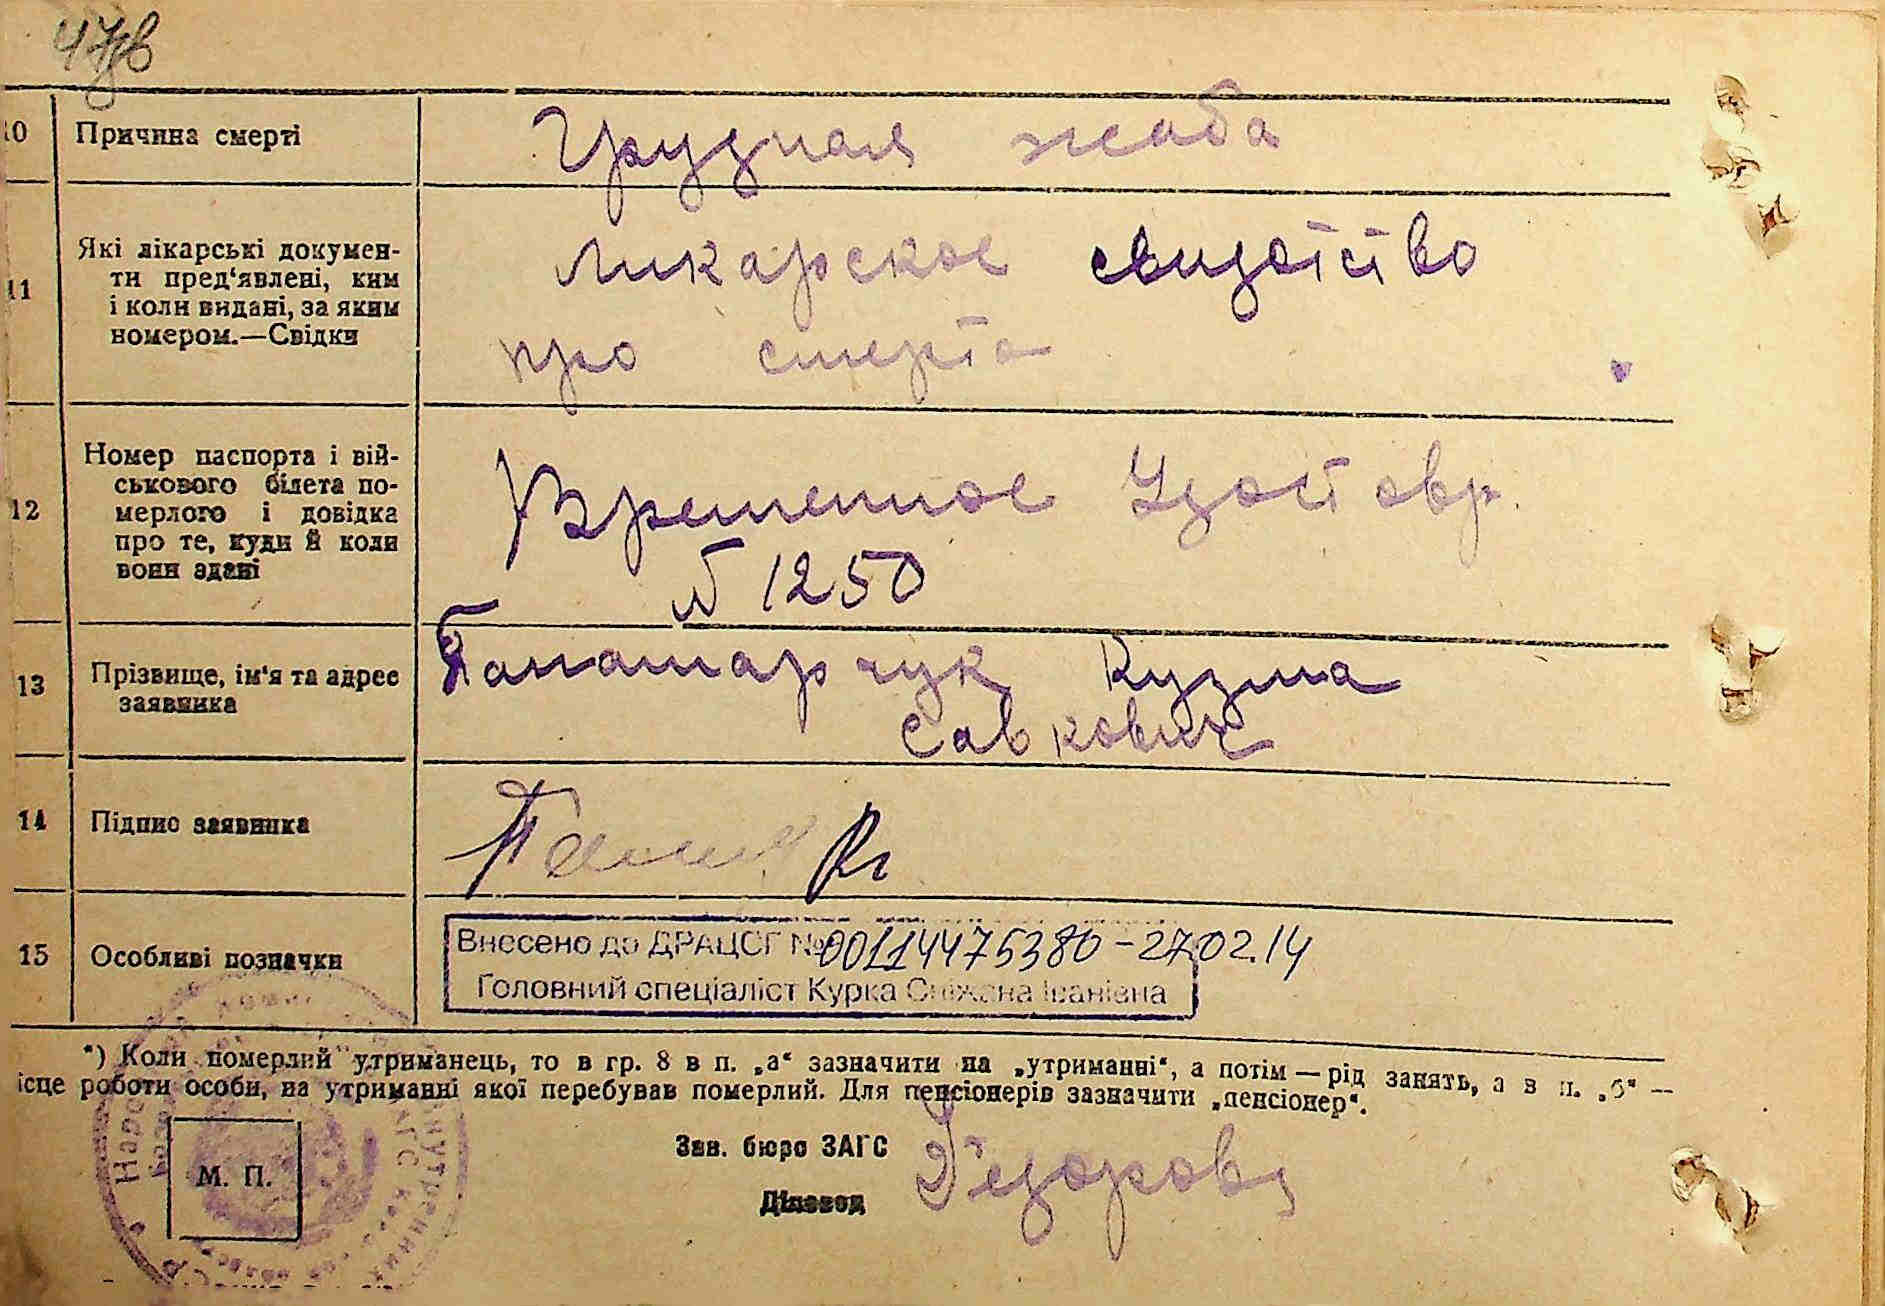 47зв
10 Причина смерті Грудная жаба
11 Які лікарські докумен-
ти пред‘явлені, ким
і коли видані, за яким
номером.—Свідки
ликарское свидотство
про смерта
12 Номер паспорта і вій-
ськового білета по-
мерлого і довідка
про те, куди й коли
вони здані
Временное Удостовр.
№ 1250
13 Прізвище, ім‘я та адрес
заявника
Панамарчук Кузма
Савкович
14 Підпис заявника
15 Особливі позначки
Внесено до ДРАЦСГ №00114475380 - 27.02.14
Головний спеціаліст Курка Сніжана Іванівна
*) Коли померлий утриманець, то в гр. 8 в п. „а“ зазначити на „утриманні“, а потім — рід занять, а в п. „б“ —
ісце роботи особи, на утриманні якої перебував померлий. Для пенсіонерів зазначити „пенсіонер“.
Зав. бюро ЗАГС
М. П.
Діловод